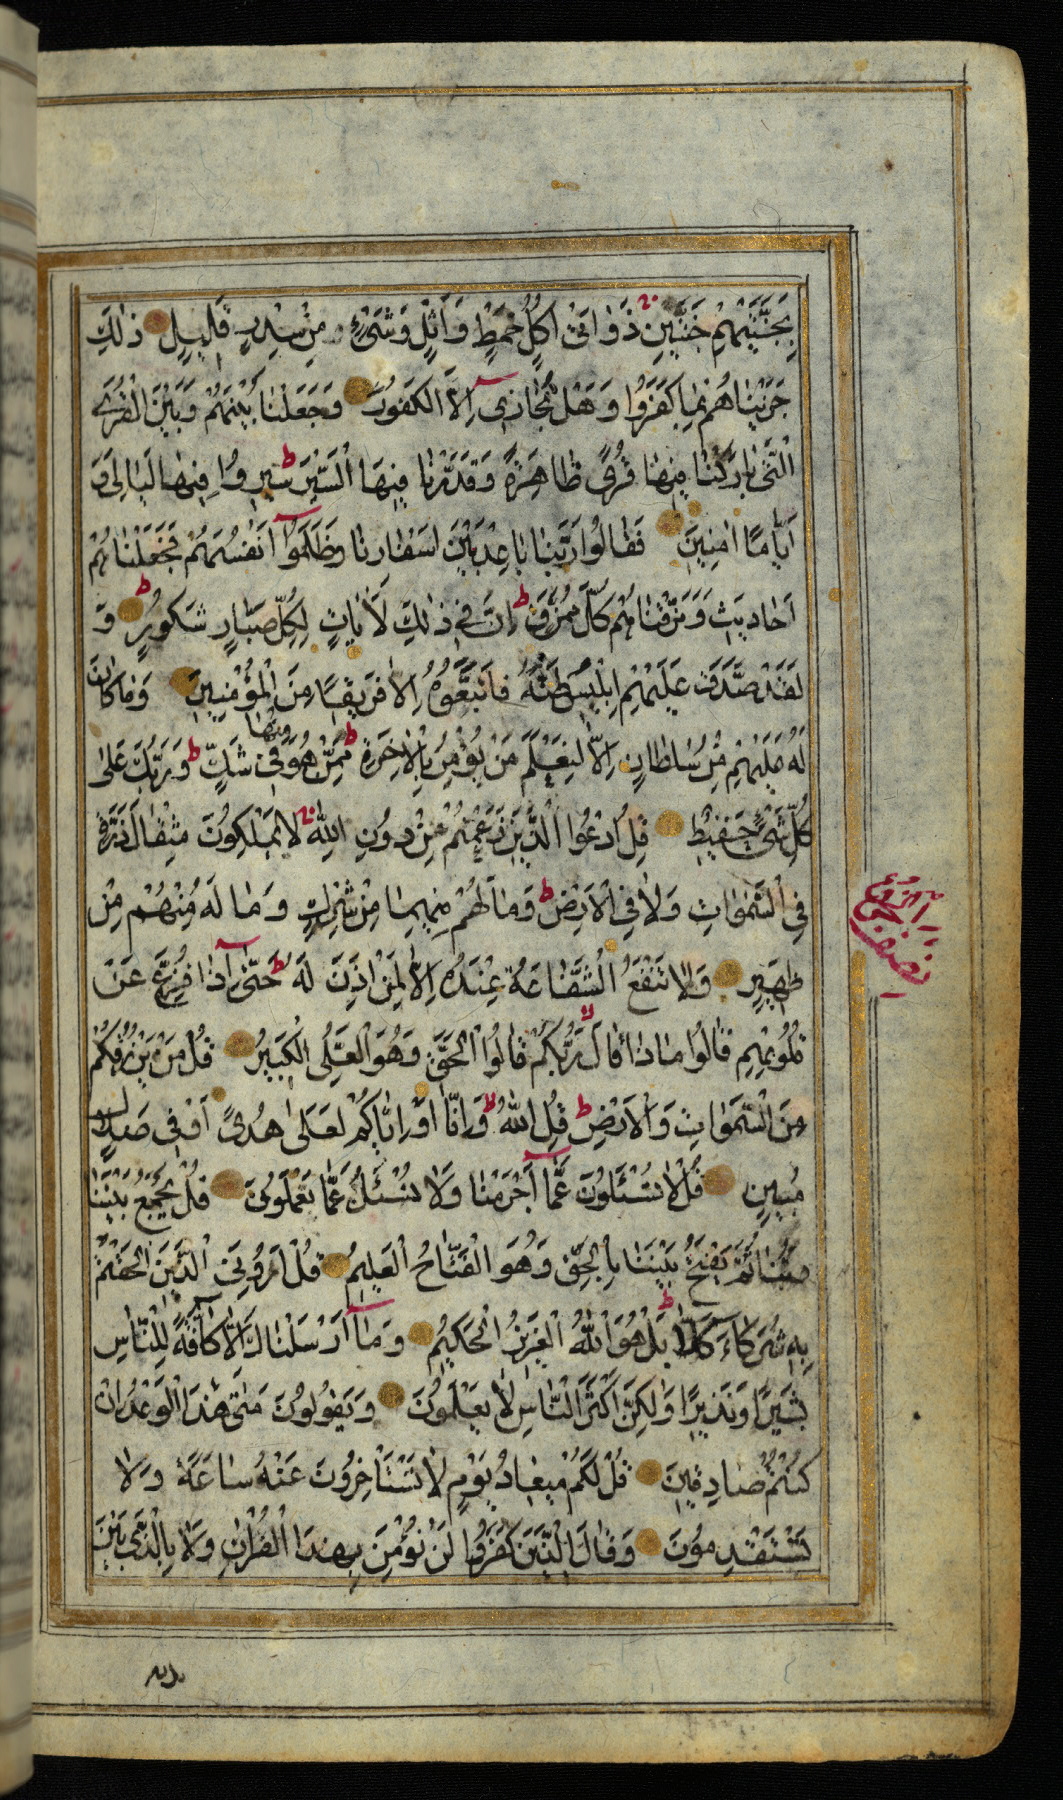 بِجَنَّتَيْهِمْ جَنَّتَيْنِ ذَوَاتَىْ اُكُلٍ خَمْطٍ وَاَثْلٍ وَشَىْءٍ مِنْ سِدْرٍ قَلِيلٍ ذٰلِكَ
جَزَيْنٰاهُمْ بِمٰا كَفَرُوا وَهَلْ نُجٰازِى اِلَّا الْكَفُورَ وَجَعَلْنٰا بَيْنَهُمْ وَبَيْنَ الْقُرَى
الَّتٖى بٰارَكْنٰا فِيهٰا قُرًى ظٰاهِرَةً وَقَدَّرْنٰا فِيهَا السَّيْرَ ط سِيرُوا فِيهٰا لَيٰالِىَ وَ
اَيّٰامًا اٰمِنِينَ فَقٰالُوا رَبَّنٰا بٰاعِدْ بَيْنَ اَسْفٰارِنٰا وَظَلَمُوا اَنْفُسَهُمْ فَجَعَلْنٰاهُمْ
اَحٰادِيثَ وَمَزَّقْنٰاهُمْ كُلَّ مُمَزَّقٍ ط اِنَّ فِى ذٰلِكَ لَاٰيٰاتٍ لِكُلِّ صَبّٰارٍ شَكُورٍ ط وَ
لَقَدْ صَدَّقَ عَلَيْهِمْ اِبْلِيسُ ظَنَّهُ فَاتَّبَعُوهُ اِلّٰا فَرِيقًا مِنَ الْمُؤْمِنِينَ وَمٰا كٰانَ
لَهُ عَلَيْهِمْ مِنْ سُلْطٰانٍ اِلّٰا لِنَعْلَمَ مَنْ يُؤْمِنُ بِالْاٰخِرَةِ مِمَّنْ هُوَ مِنْهٰا فِى شَكٍّ ط وَرَبُّكَ عَلىٰ
كُلِّ شَىْءٍ حَفِيظٌ قُلِ ادْعُوا الَّذِينَ زَعَمْتُمْ مِنْ دُونِ اللّٰهِ لٰا يَمْلِكُونَ مِثْقٰالَ ذَرَّةٍ
فِى السَّمٰوٰاتِ وَلٰا فِى الْاَرْضِ ط وَمٰا لَهُمْ فِيهِمٰا مِنْ شِرْكٍ وَمٰا لَهُ مِنْهُمْ مِنْ
ظَهِيرٍ وَلٰا تَنْفَعُ الشَّفٰاعَةُ عِنْدَهُ اِلّٰا لِمَنْ اَذِنَ لَهُ ط حَتّٰى اِذٰا فُزِّعَ عَنْ
قُلُوبِهِمْ قٰالُوا مٰاذٰا قٰالَ لا رَبُّكُمْ قٰالُوا الْحَقَّ وَهُوَ الْعَلِىُّ الْكَبِيرُ قُلْ مَنْ يَرْزُقُكُمْ
مِنَ السَّمٰوٰاتِ وَالْاَرْضِ ط قُلِ اللّٰهُ لا وَاِنّٰا اَوْ اِيّٰاكُمْ لَعَلىٰ هُدىً اَوْ فِى ضَلٰالٍ
مُبِينٍ قُلْ لٰا تُسْئَلُونَ عَمّٰا اَجْرَمْنٰا وَلٰا نُسْئَلُ عَمّٰا تَعْمَلُونَ قُلْ يَجْمَعُ بَيْنَنٰا
رَبُّنٰا ثُمَّ يَفْتَحُ بَيْنَنٰا بِالْحَقِّ وَهُوَ الْفَتّٰاحُ الْعَلِيمُ قُلْ اَرُونِىَ الَّذِينَ اَلْحَقْتُمْ
بِهِ شُرَكٰاءَ كَلّٰا ط بَلْ هُوَ اللّٰهُ الْعَزِيزُ الْحَكِيمُ وَمٰا اَرْسَلْنٰاكَ اِلّٰا كٰافَّةً لِلنّٰاسِ
بَشِيرًا وَنَذِيرًا وَلٰكِنَّ اَكْثَرَ النّٰاسِ لٰا يَعْلَمُونَ وَيَقُولُونَ مَتىٰ هٰذَا الْوَعْدُ اِنْ
كُنْتُمْ صٰادِقِينَ قُلْ لَكُمْ مِيعٰادُ يَوْمٍ لٰا تَسْتَاْخِرُونَ عَنْهُ سٰاعَةً وَلٰا
تَسْتَقْدِمُونَ وَقٰالَ الَّذِينَ كَفَرُوا لَنْ نُؤْمِنَ بِهٰذَا الْقُرْاٰنِ وَلٰا بِالَّذِى بَيْنَ